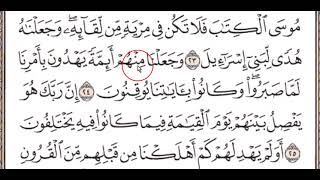 مُوسَى ٱلْكِتَٰبَ فَلَا تَكُن فِى مِرْيَةٍ مِّن لِّقَآئِهِۦ ۖ وَجَعَلْنَٰهُ
هُدًى لِّبَنِىٓ إِسْرَٰٓءِيلَ ٢٣ وَجَعَلْنَا مِنْهُمْ أَئِمَّةً يَهْدُونَ بِأَمْرِنَا
لَمَّا صَبَرُوا۟ ۖ وَكَانُوا۟ بِـَٔايَٰتِنَا يُوقِنُونَ ٢٤ إِنَّ رَبَّكَ هُوَ
يَفْصِلُ بَيْنَهُمْ يَوْمَ ٱلْقِيَٰمَةِ فِيمَا كَانُوا۟ فِيهِ يَخْتَلِفُونَ
٢٥ أَوَلَمْ يَهْدِ لَهُمْ كَمْ أَهْلَكْنَا مِن قَبْلِهِم مِّنَ ٱلْقُرُونِ